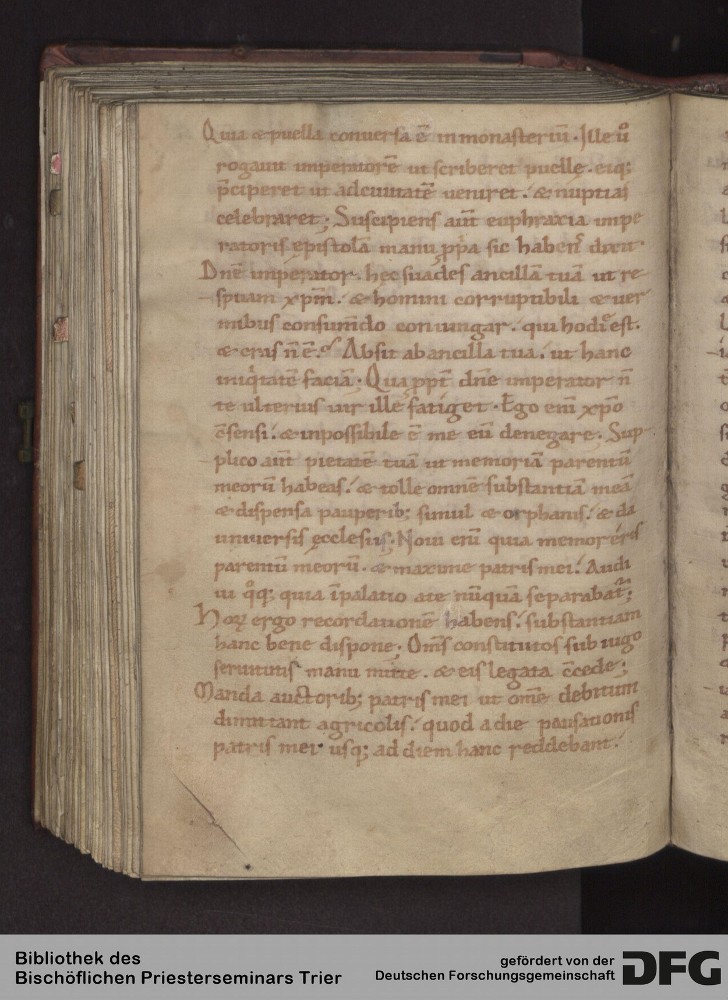 Quia & puella conuersa ē in monasteriū. Ille u͛o
rogauit imperatorē ut scriberet puellę. eiq;
p̄ciperet ut ad ciuitatē ueniret. & nuptias
celebraret; Suscipiens aūt euphraxia impe
ratoris epistolā manu ꝓpa sic habent͛ dixit.
Dn̄e imperator. hęc suades ancillā tuā ut re-
spuam xp̄m. & homini corruptibili & uer
mibus consumēdo coniungar. qui hodie est.
& cras n̄ ē. Absit ab ancilla tua. ut hanc
iniq͛tatē faciā. Qua ppt̄ dn̄e imperator n̄
te ulterius uir ille fatiget. Ego eni̅ xp̄o
c̄sensi. & inpossibile ē me eū denegare. Sup-
plico aūt pietatē tuā ut memoriā parentū
meorū habeas. & tolle omnē substantiā meā
& dispensa pauperib; simul & orphanis. & da
uniuersis ęcclesiis. Noui eni̅ quia memor eris
parentū meorū. & maxime patris mei. Audi
ui q͛q; quia ī palatio a te nūquā separabat͛;
Hoꝝ ergo recordationē habens. substantiam
hanc bene dispone; Om̄s constitutos sub iugo
seruitutis manu mitte. & eis legata c̄cede;
Manda auctorib; patris mei ut om̄e debitum
dimittant agricolis. quod a die pausationis
patris mei usq; ad diem hanc reddebant.
Bibliothek des
Bischöflichen Priesterseminars Trier
gefördert von der
Deutschen Forschungsgemeinschaft
DFG